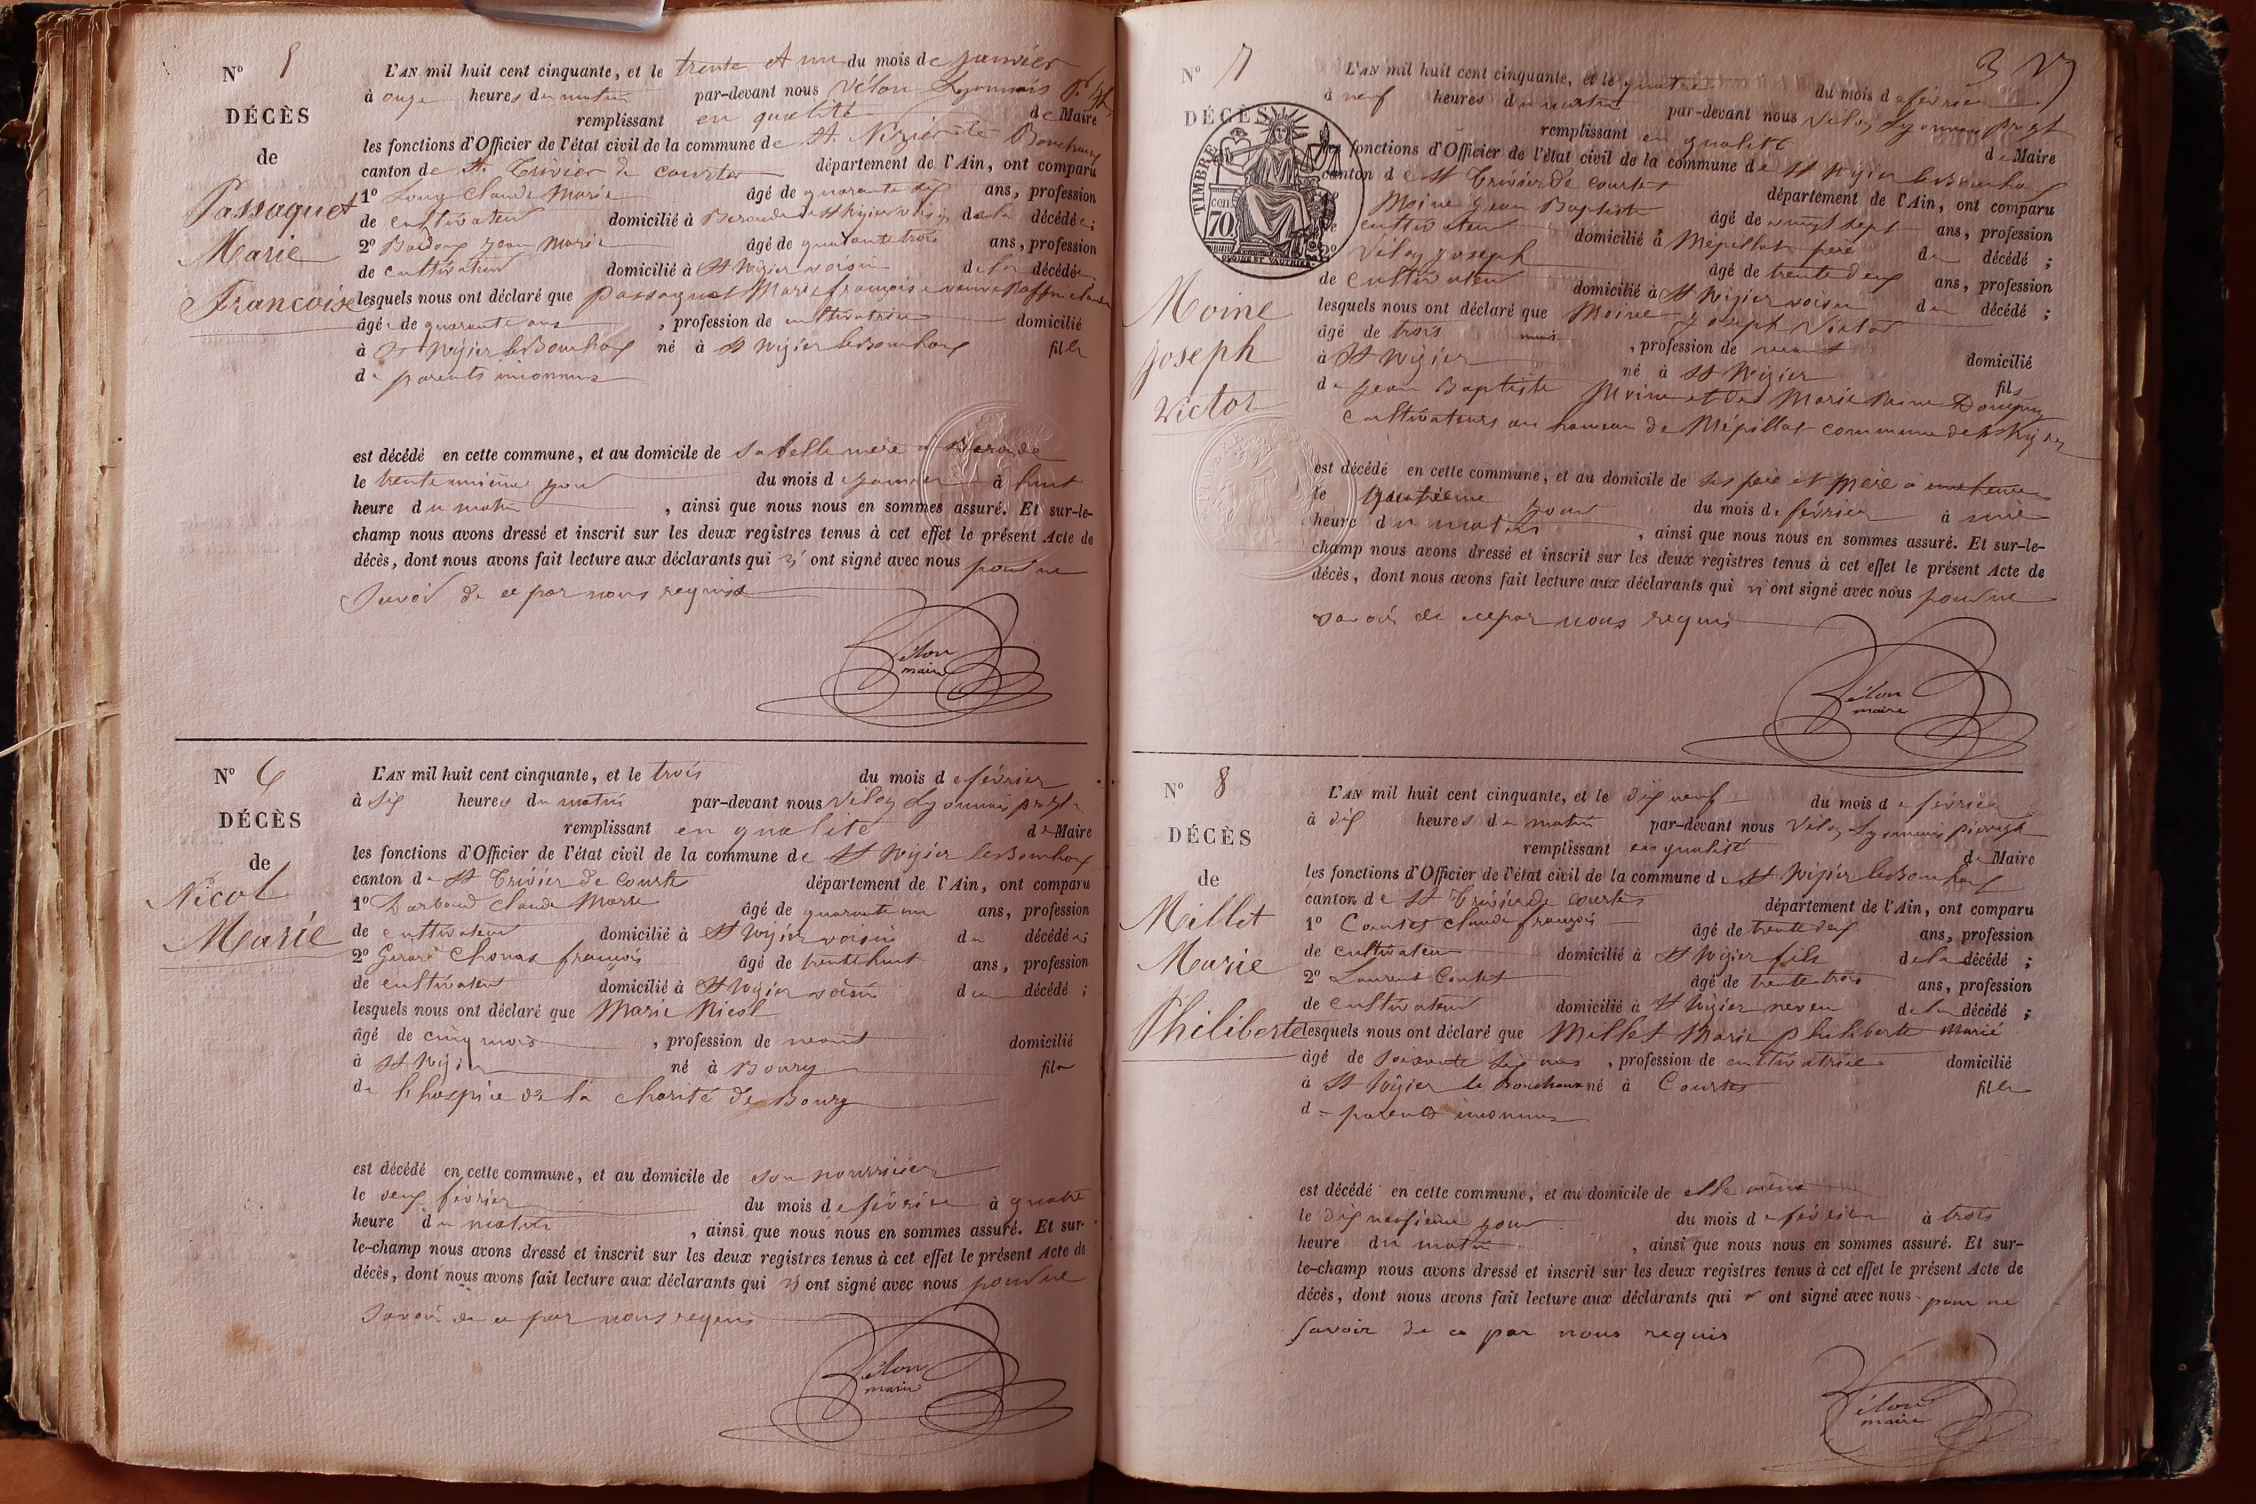 N° 5
DÉCÈS
de
Passaquet
Marie
Francoise
L'AN mil huit cent cinquante, et le trente et un du mois de janvier
à onze heures du matin par-devant nous Vélon Lyonnais
remplissant en qualité de Maire
les fonctions d'Officier de l'état civil de la commune de St. Nizier le Bouchoux
canton de St. Trivier de Courtes département de l'Ain, ont comparu
1° Claude Marie âgé de quarante dix ans, profession
de cultivateur domicilié à St Nizier voisin de la décédée;
2° Jean Marie âgé de quarante trois ans, profession
de cultivateur domicilié à St Nizier voisin de la décédée
lesquels nous ont déclaré que passaquet Marie françoise veuve
âgée de quarante ans, profession de cultivatrice domicilié
à St Nizier le Bouchoux né à St Nizier le Bouchoux fille
de parents inconnus
est décédé en cette commune, et au domicile de sa belle mère à
le trente unieme jour du mois de janvier à huit
heure du matin, ainsi que nous nous en sommes assuré. Et sur-le-
champ nous avons dressé et inscrit sur les deux registres tenus à cet effet le présent Acte de
décès, dont nous avons fait lecture aux déclarants qui n'ont signé avec nous pour ne
savoir de ce par nous requis
Vélon
maire
N° 6
DÉCÈS
de
Nicol
Marie
L'AN mil huit cent cinquante, et le trois du mois de février
à six heures du matin par-devant nous Vélon Lyonnais
remplissant en qualité de Maire
les fonctions d'Officier de l'état civil de la commune de St Nizier le Bouchoux
canton de St Trivier de Courtes département de l'Ain, ont comparu
1° Darbond Claude Marie âgé de quarante un ans, profession
de cultivateur domicilié à St Nizier voisin du décédée;
2° françois âgé de trente huit ans, profession
de cultivateur domicilié à St Nizier voisin du décédé;
lesquels nous ont déclaré que Marie Nicol
âgé de cinq mois, profession de neant domicilié
à St Nizier né à Bourg fille
de l'hospice de la charité de Bourg
est décédé en cette commune, et au domicile de son nourricier
le deux février du mois de février à quatre
heure du matin, ainsi que nous nous en sommes assuré. Et sur-
le-champ nous avons dressé et inscrit sur les deux registres tenus à cet effet le présent Acte de
décès, dont nous avons fait lecture aux déclarants qui n'ont signé avec nous pour ne
savoir de ce par nous requis
Vélon
maire
3
N° 7
DÉCÈS
TIMBRE
cen.
70
Moine
joseph
Victor
L'AN mil huit cent cinquante, et le quatre du mois de février
à neuf heures du matin par-devant nous Vélon Lyonnais
remplissant en qualité de Maire
fonctions d'Officier de l'état civil de la commune de St Nizier le Bouchoux
canton de St Trivier de Courtes département de l'Ain, ont comparu
Moine Jean Baptiste âgé de vingt sept ans, profession
cultivateur domicilié à Mépillat père du décédé;
Vélon joseph âgé de trente deux ans, profession
de cultivateur domicilié à St Nizier voisin du décédé;
lesquels nous ont déclaré que Moine joseph Victor
âgé de trois mois, profession de neant domicilié
à St Nizier né à St Nizier fils
de jean Baptiste Moine et de Marie
cultivateurs au hameau de Mépillat commune de St Nizier
est décédé en cette commune, et au domicile de ses père et mère à
le quatrième jour du mois de février à une
heure du matin, ainsi que nous nous en sommes assuré. Et sur-le-
champ nous avons dressé et inscrit sur les deux registres tenus à cet effet le présent Acte de
décès, dont nous avons fait lecture aux déclarants qui n'ont signé avec nous pour ne
savoir de ce par nous requis
Vélon
maire
N° 8
DÉCÈS
de
Millet
Marie
Philiberte
L'AN mil huit cent cinquante, et le dix neuf du mois de février
à dix heures du matin par-devant nous Vélon Lyonnais
remplissant en qualité de Maire
les fonctions d'Officier de l'état civil de la commune de St Nizier le Bouchoux
canton de St Trivier de Courtes département de l'Ain, ont comparu
1° Contet Claude françois âgé de trente dix ans, profession
de cultivateur domicilié à St Nizier fils de la décédé;
2° Laurent Contet âgé de trente trois ans, profession
de cultivateur domicilié à St Nizier neveu de la décédé;
lesquels nous ont déclaré que Millet Marie philiberte Marie
âgé de soixante six ans, profession de cultivatrice domicilié
à St Nizier le Bouchoux né à Courtes fille
de parents inconnus
est décédé en cette commune, et au domicile de elle même
le dix neufieme jour du mois de février à trois
heure du matin, ainsi que nous nous en sommes assuré. Et sur-
le-champ nous avons dressé et inscrit sur les deux registres tenus à cet effet le présent Acte de
décès, dont nous avons fait lecture aux déclarants qui n'ont signé avec nous pour ne
savoir de ce par nous requis
Vélon
maire